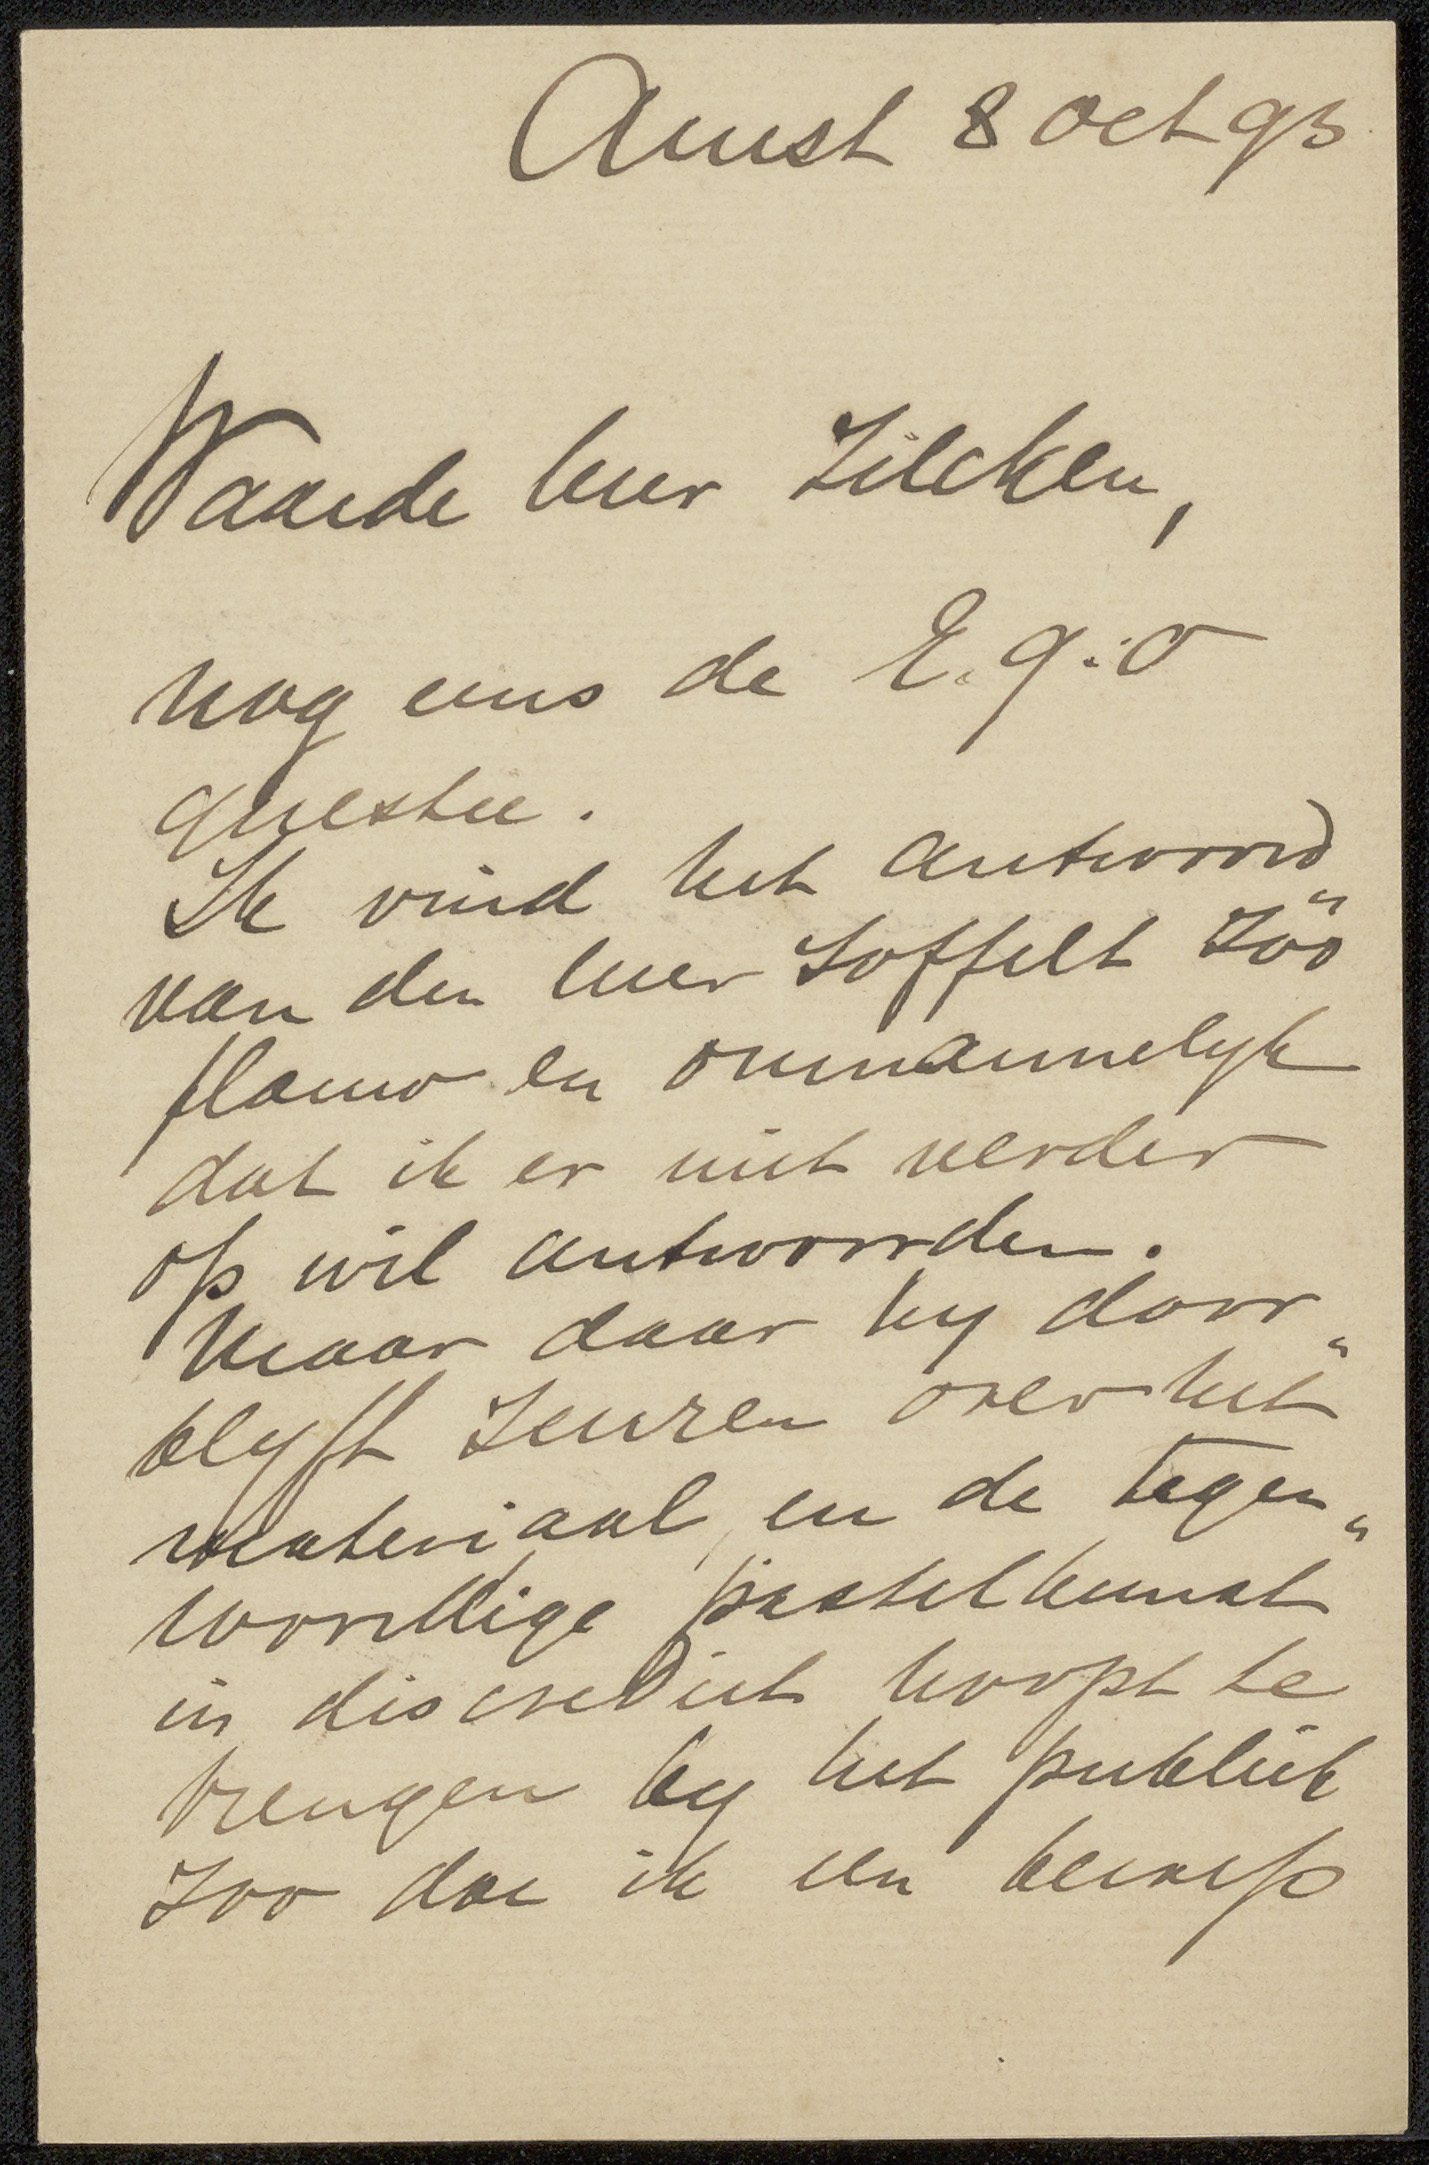 Amst 8 Oct 93
Waarde heer Zilcken,
nog eens de E.g.:O
questie.
Ik vind het antwoord
van den heer Loffelt zóó
flauw en onmannelyk
dat ik er niet verder
op wil antwoorden.
Maar daar hy door„
blyft zeuren over het
materiaal, en de tegen„
woordige pastelkunst
in discrediet hoopt te
brengen by het publiek
zoo doe ik een beroep